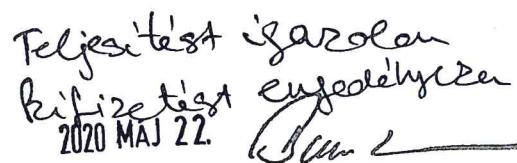 Teljesítést igazolom
kifizetést engedélyezem
2020 MÁJ 22.